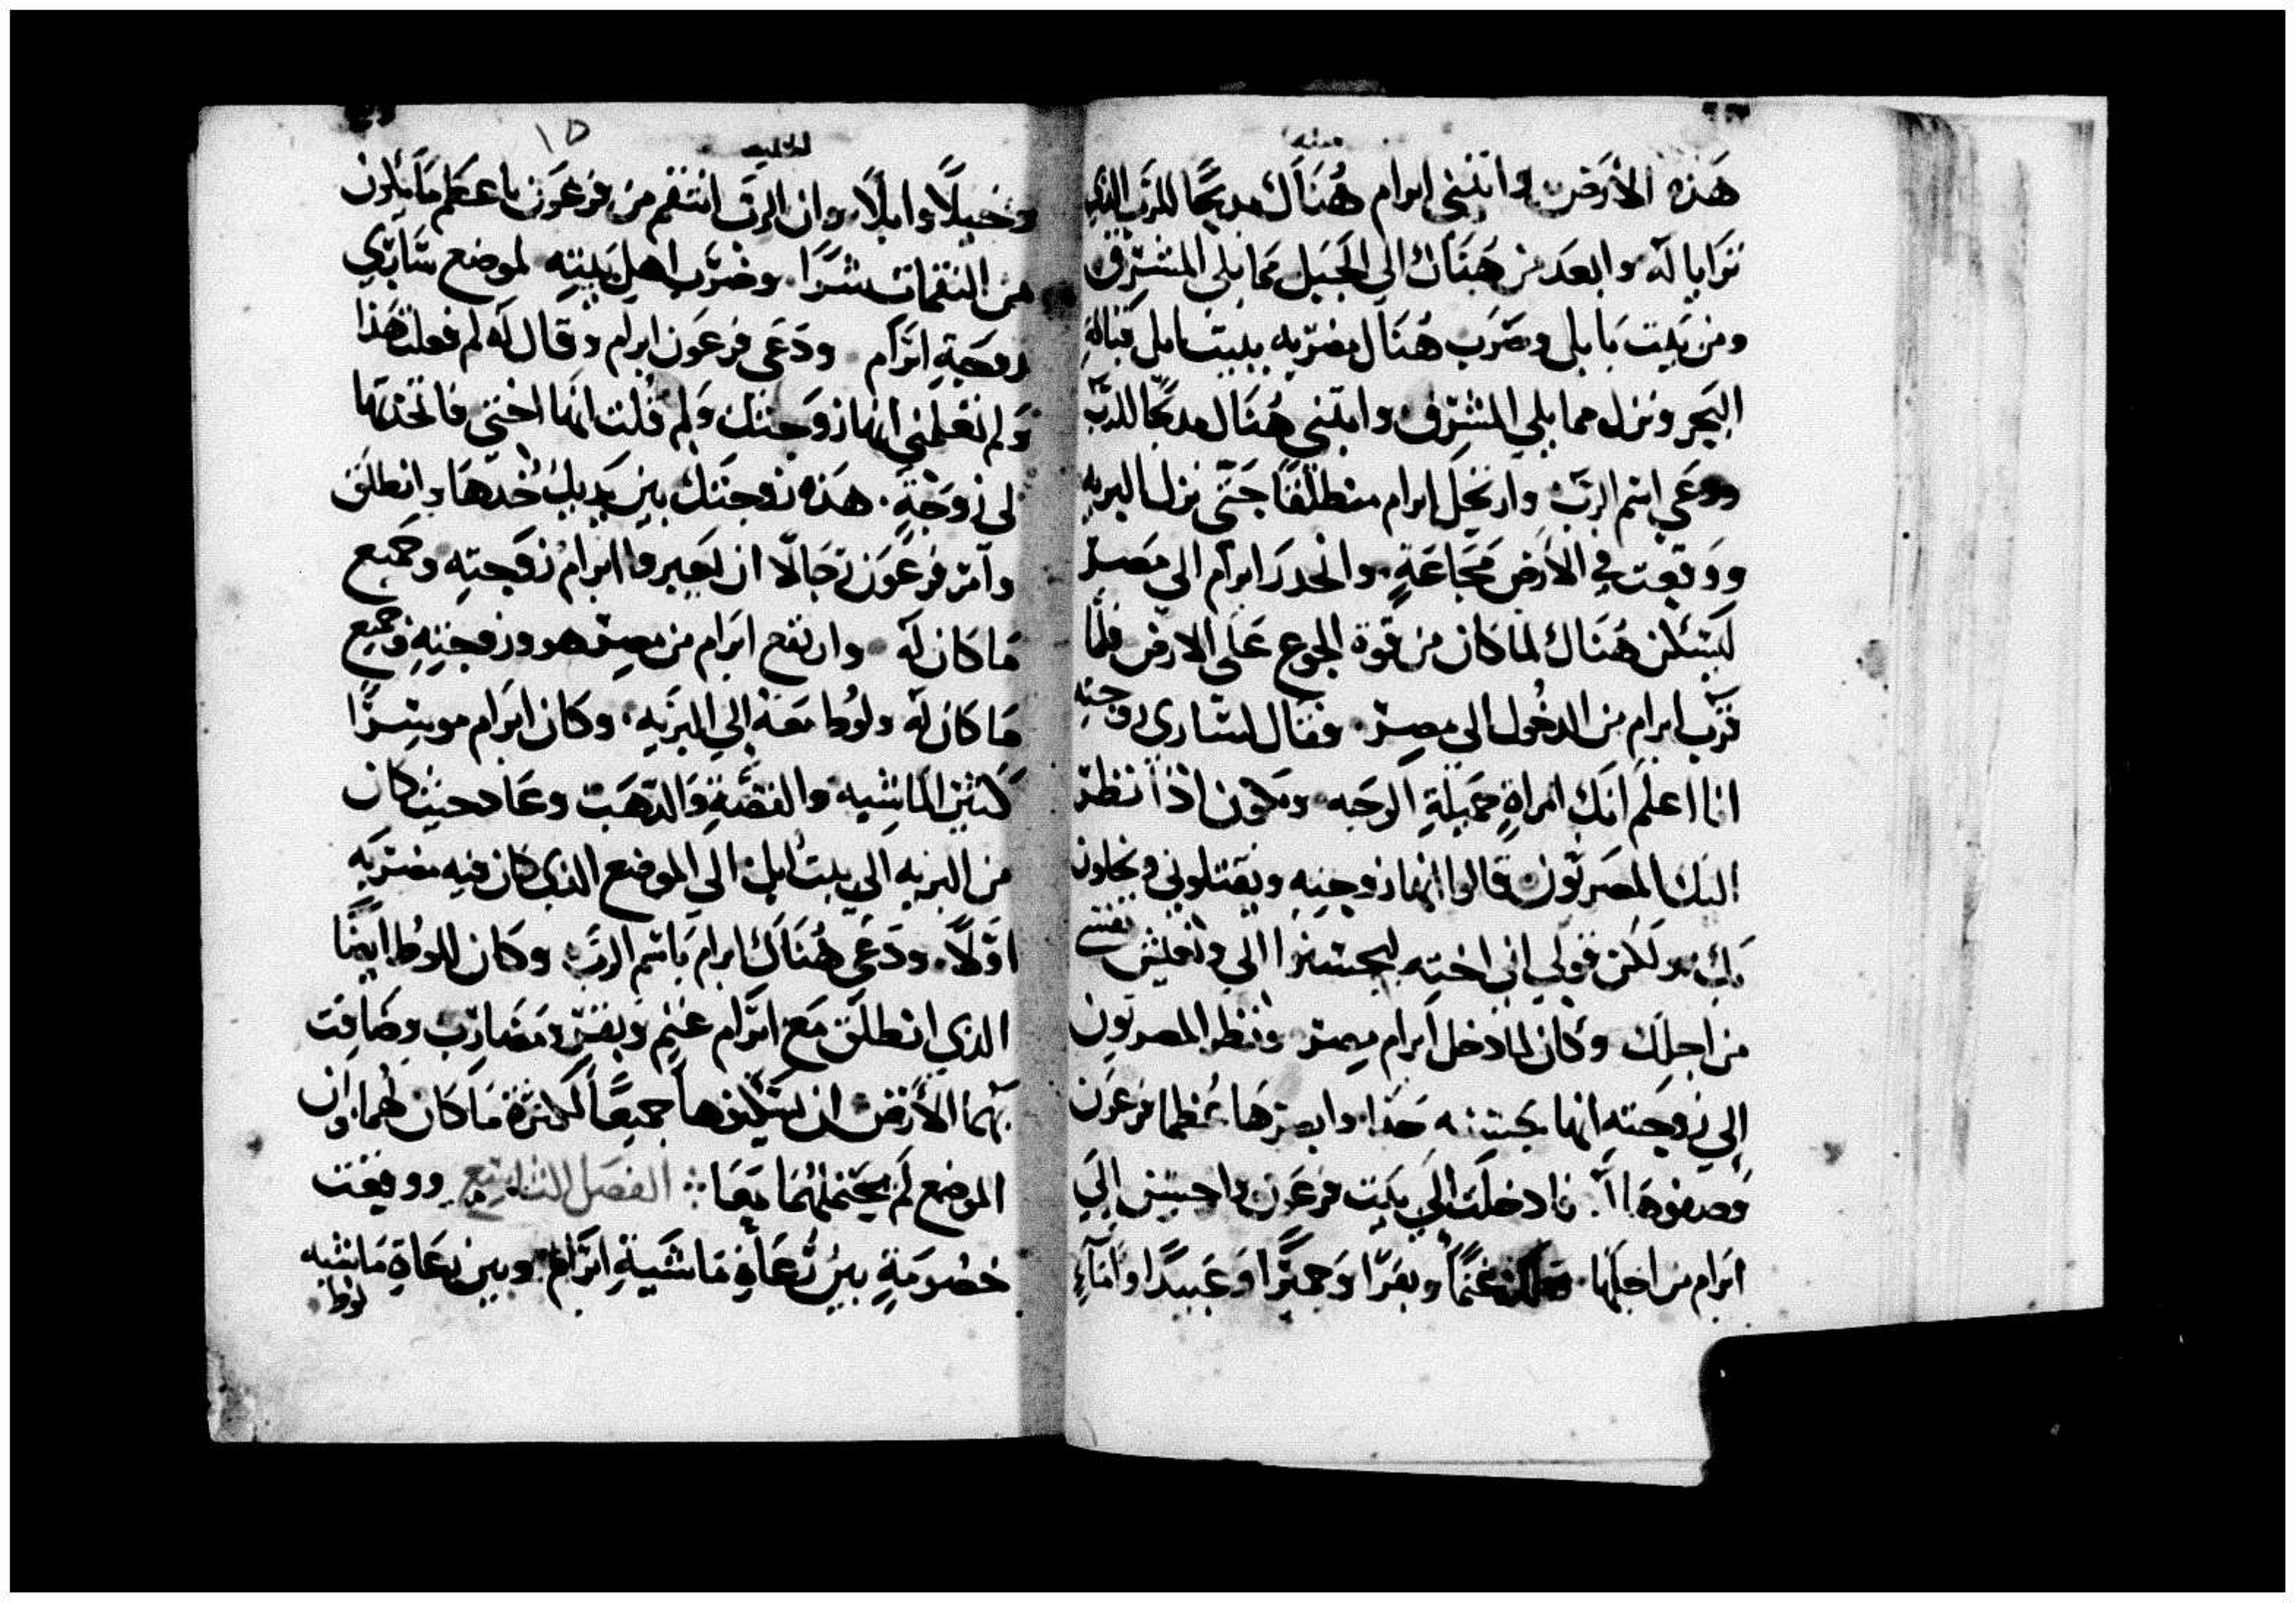 هَذه الأرَض وابتنى ابرام هُنَاَك مدبحًا للرَب الذي
تَرَايا لَه وابعَد من هَنَاك الي الجَبَل مَما يلي المشرق
ومن بَيت بَابل وضَرَب هُنَاَك مضربه ببيت ابل قبالة
البَحر ونزل مما يلي المشرِق وابتني هُنَاك مدبحًا للربّ
ودعَي اسم الربّ وارتحل ابرام منطلقًا حَتّى نزل البريه
ووقعت في الأرَض مَجَاعَةٍ وانحدرَ ابرام الى مَصر
ليَسَكن هُنَاك لما كان من قوة الجوع عَلى الارض فلمّا
قرّب ابرام من الدخُول الى مصِر فقال لسَاري زوجته
انا اعلَم انَك امراةٍ جَميلةٍ الوجَه ويَكون اذاَ نظر
اليَك المصَريُون قَالوا انها زوجته ويقتلوني ويخلون
بكِ ولَكن قولي اني اخته ليحسنوا الي وتعيش نفسي
من اجلِك وكان لما دخل ابرام مصر ونظر المصريون
إلى زوجَته انها حَسنه جَدا وابصرهَا عُظما فرعَون
وصفوهَا لَه فادخلَت الَي بَيت فرعَون واحسن الَي
ابَرام من اجلَها غنمًا وبقرًا وَحميرًا وَعَبيدًا واماءٍ
وخيلًا وابلًا وان الربَ انتقم من فرعَون باعظَم مَا يكون
من النقمات شرًا وضرَب اهل بَيته لموضع سَارَي
زوجَةِ ابرَام ودَعَى فرعَون ابرام وقال لَه لم فعلت هَذا
وَلم تعَلمني انها زوجَتك وَلم قُلت انَها اختي فاتخدتها
لى زوجَةٍ هَذه زوجتك بين يَديك خُدهَا وانطَلَق
وآمر فرعَون رجَالًا ان يَعبروا ابرام وزَوجته وجَميع
مَا كَان لَه وارتفع ابَرام من مِصر هو وزوجته وجميع
مَا كَان لَه ولوُط مَعَه إلي البرَيه وكان ابَرام موسِرًا
كَثير الماشِيه والفضَةِ وَالدهَب وعَاد حيث كان
من البريه الي بيت ابل الي الموضع الذي كان فيه مضربَه
اوّلًا ودَعَى هُنَاَك ابرام بَاسم الربّ وكان للوُط ايضًا
الذي انطلَق مَع ابرَام غنمٍ وبقرٍ ومَضاربٍ وضَاقَت
بهما الأرَض ان يَسَكنوهاَ جميعًا لكثرَة مَا كان لهما وان
الموضع لم يحَتملهُمَا مَعَا الفصَل التاسع ووقعَت
خصُومَةٍ بين رُعَاةِ مَاشَيةِ ابرَام وبين رعَاةِ مَاشيه
لوط